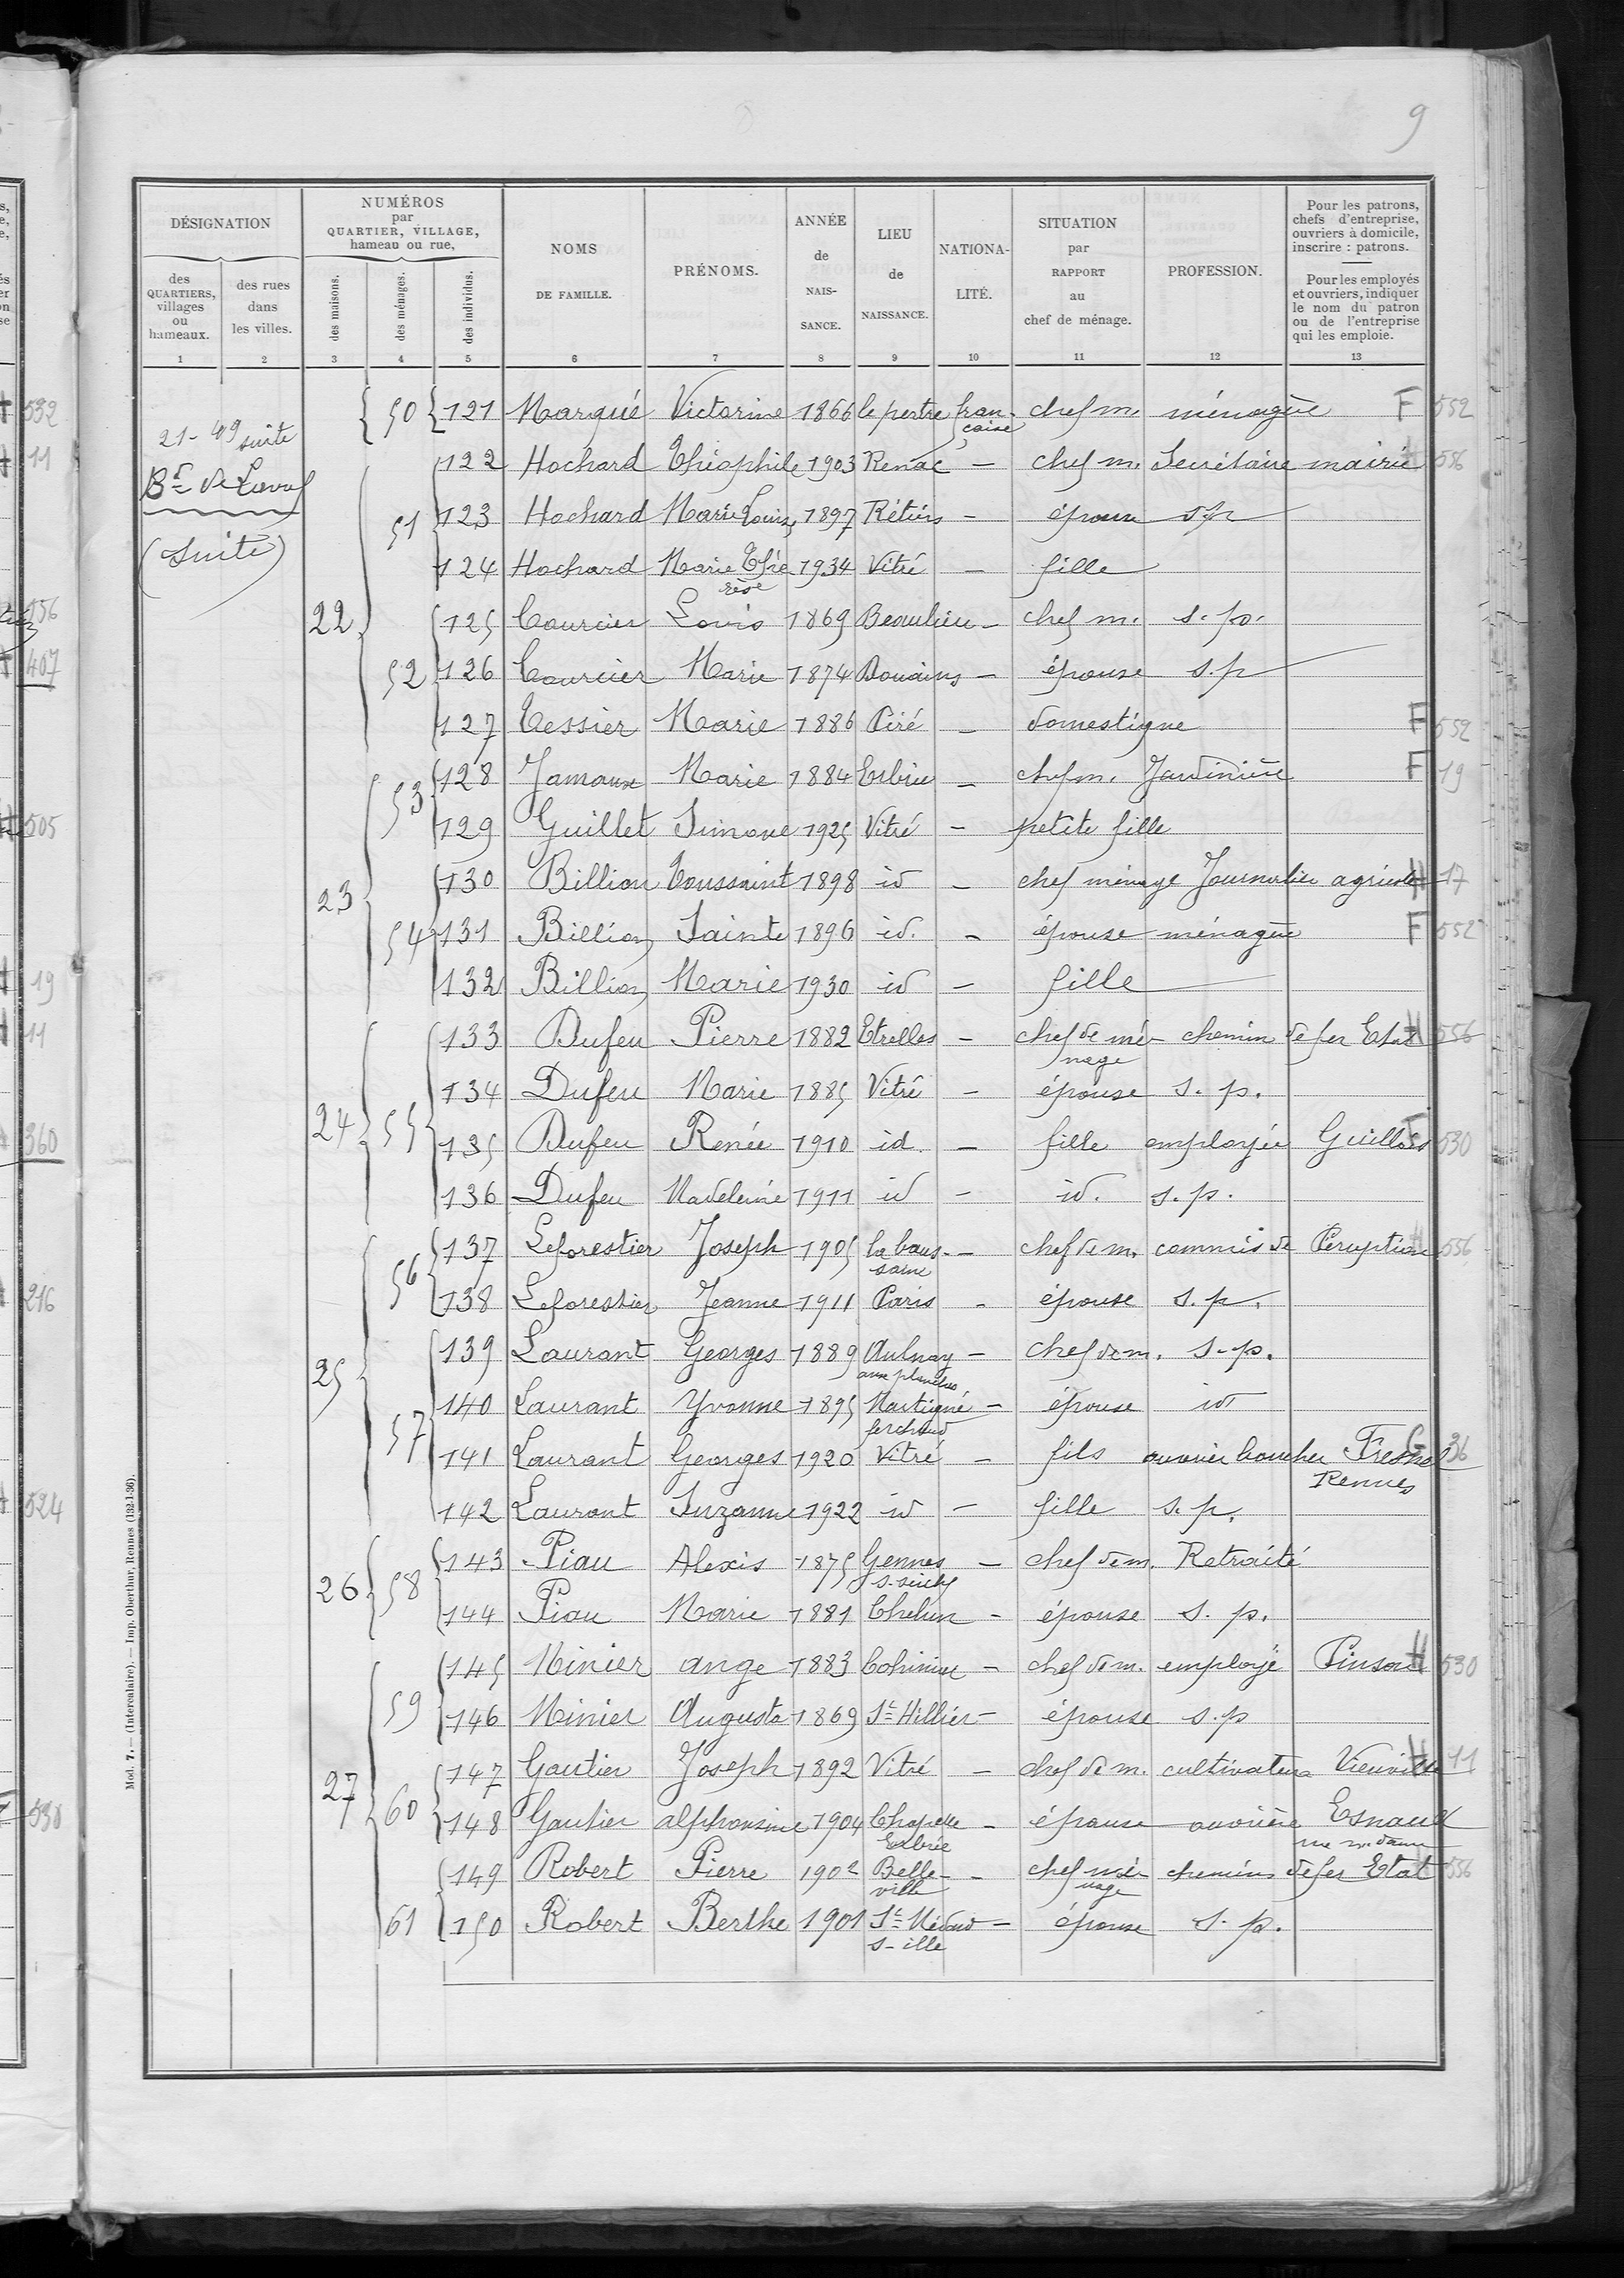 9
DÉSIGNATION
des QUARTIERS, villages ou hameaux.
des rues dans les villes.
NUMÉROS par QUARTIER, VILLAGE, hameau ou rue,
des maisons.
des ménages.
des individus.
NOMS DE FAMILLE.
PRÉNOMS.
ANNÉE de NAIS-SANCE.
LIEU de NAISSANCE.
NATIONA-LITÉ.
SITUATION par RAPPORT au chef de ménage.
PROFESSION.
Pour les patrons, chefs d'entreprise, ouvriers à domicile, inscrire : patrons.
Pour les employés et ouvriers, indiquer le nom du patron ou de l'entreprise qui les emploie.
1 2 3 4 5 6 7 8 9 10 11 12 13
21-49 suite
Bd de Laval
(Suite)
50 121 Marqué Victorine 1866 le pertre française chef m. ménagère F 552
22 51 122 Hochard Théophile 1903 Renac - chef m. Secrétaire mairie 556
123 Hochard Marie Louise 1897 Rétiers - épouse s.p
124 Hochard Marie Thérèse 1934 Vitré - fille
52 125 Courcier Louis 1869 Beaulieu - chef m. s.p.
126 Courcier Marie 1874 - épouse s.p
127 Tessier Marie 1886 Piré - domestique F 552
23 53 128 Jamaux Marie 1884 Erbrée - chef m. Jardinière F 19
129 Guillet Simone 1925 Vitré - petite fille
54 130 Billion Toussaint 1898 id - chef ménage Journalier agricole H 17
131 Billion Sainte 1896 id. - épouse ménagère F 552
132 Billion Marie 1930 id - fille
24 55 133 Dufeu Pierre 1882 Etrelles - chef de ménage chemin de fer Etat H 556
134 Dufeu Marie 1885 Vitré - épouse s.p.
135 Dufeu Renée 1910 id. - fille employée F 530
136 Dufeu Madeleine 1911 id - id. s.p.
25 56 137 Leforestier Joseph 1905 la baussaine - chef de m. commis de Perception H 556
138 Leforestier Jeanne 1911 Paris - épouse s.p.
57 139 Laurant Georges 1889 Aulnay aux planches - chef de m. s.p.
140 Laurant Yvonne 1895 Martigné ferchaud - épouse id
141 Laurant Georges 1920 Vitré - fils ouvrier boucher Fresnel Rennes 36
142 Laurant Suzanne 1922 id - fille s.p.
26 58 143 Piau Alexis 1875 Gennes s-seiche - chef de m. Retraité
144 Piau Marie 1881 Chelun - épouse s.p.
27 59 145 Minier Ange 1883 Cohiniac - chef de m. employé Pinson H 530
146 Minier Augusta 1869 St Hillier - épouse s.p
60 147 Gautier Joseph 1892 Vitré - chef de m. cultivateur Vieuville H 11
148 Gautier Alphonsine 1904 Chapelle Erbrée - épouse ouvrière Esnault
61 149 Robert Pierre 1902 Belleville - chef ménage chemins de fer Etat 556
150 Robert Berthe 1901 St Médard s-ille - épouse s.p.
Mod. 7. — (Intercalaire). — Imp. Oberthur, Rennes (132-1-36).
532
11
156
407
505
19
11
360
216
524
530